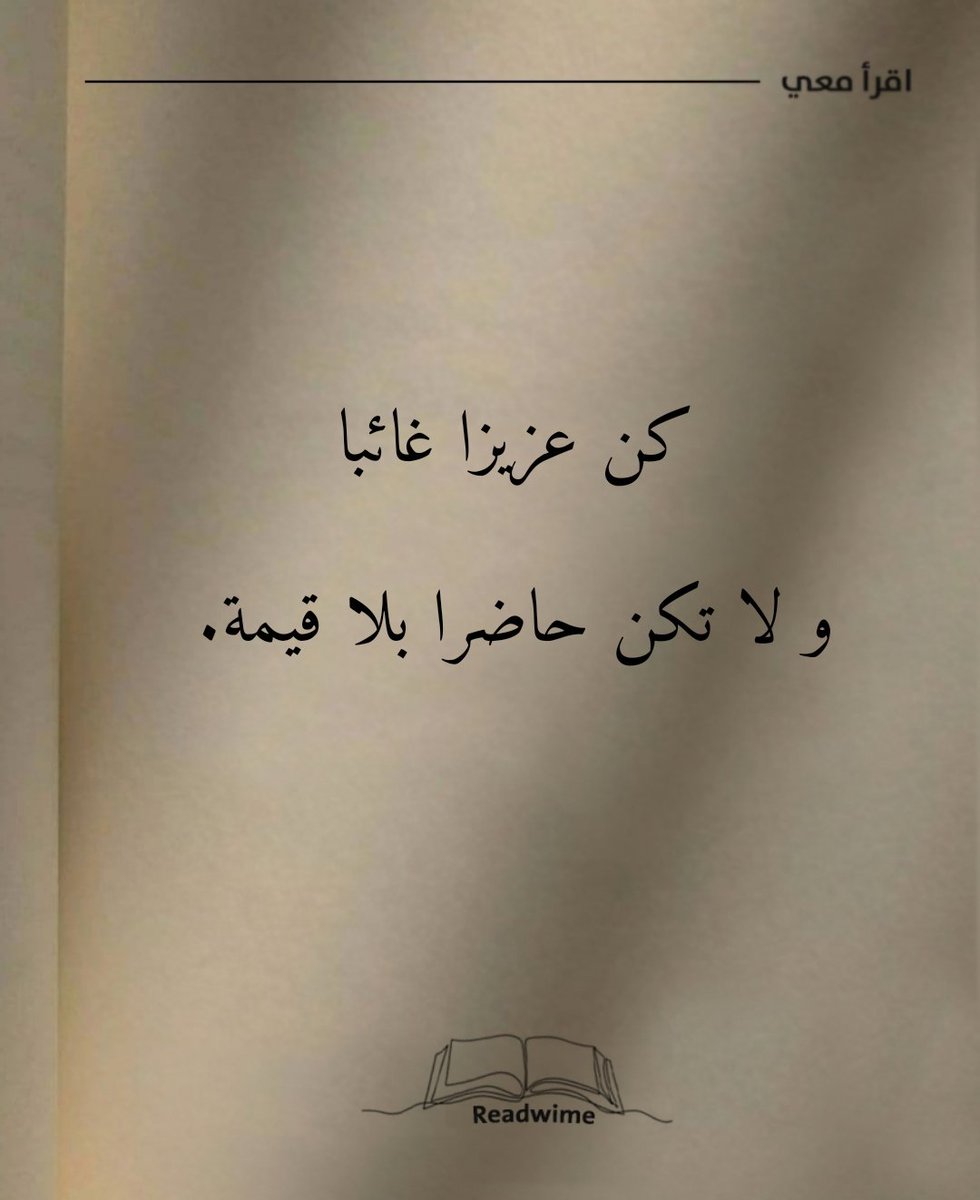 اقرأ معي
كن عزيزا غائبا
و لا تكن حاضرا بلا قيمة.
Readwime